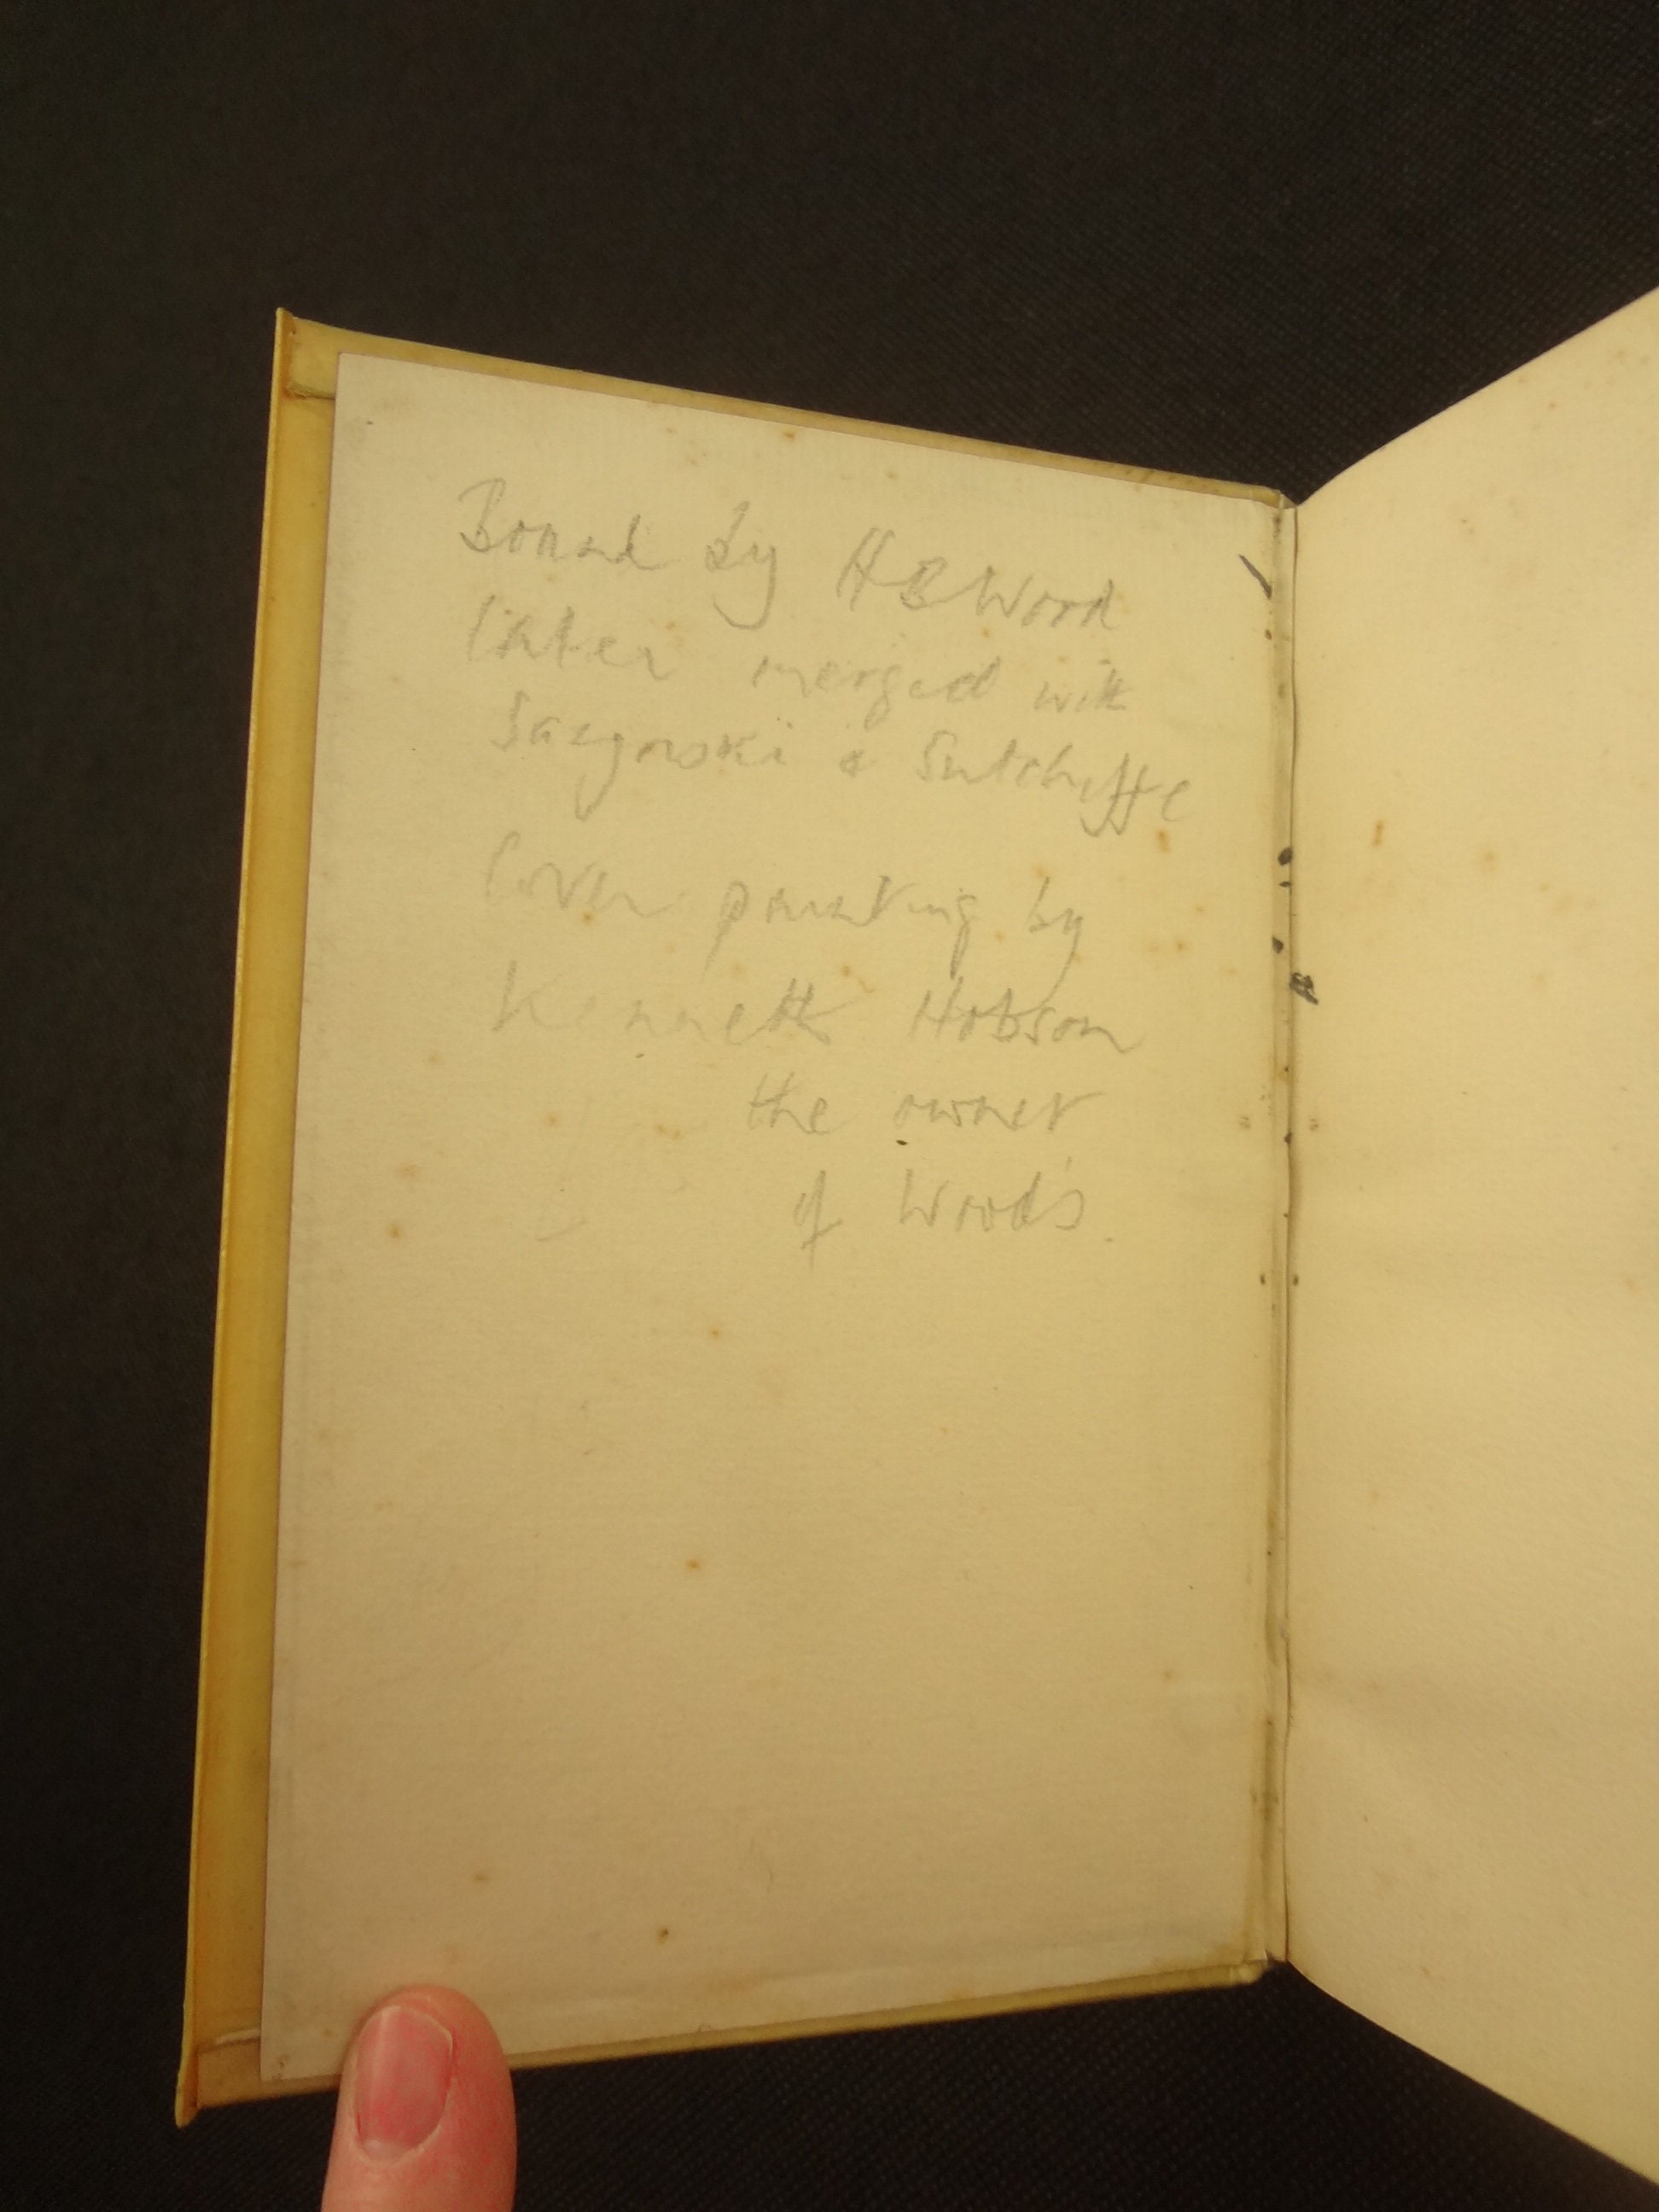 Bound by HB Wood
later merged with
Sazgorski & Sutcliffe
Cover painting by
Kenneth Hobson
the owner
of Wood's.